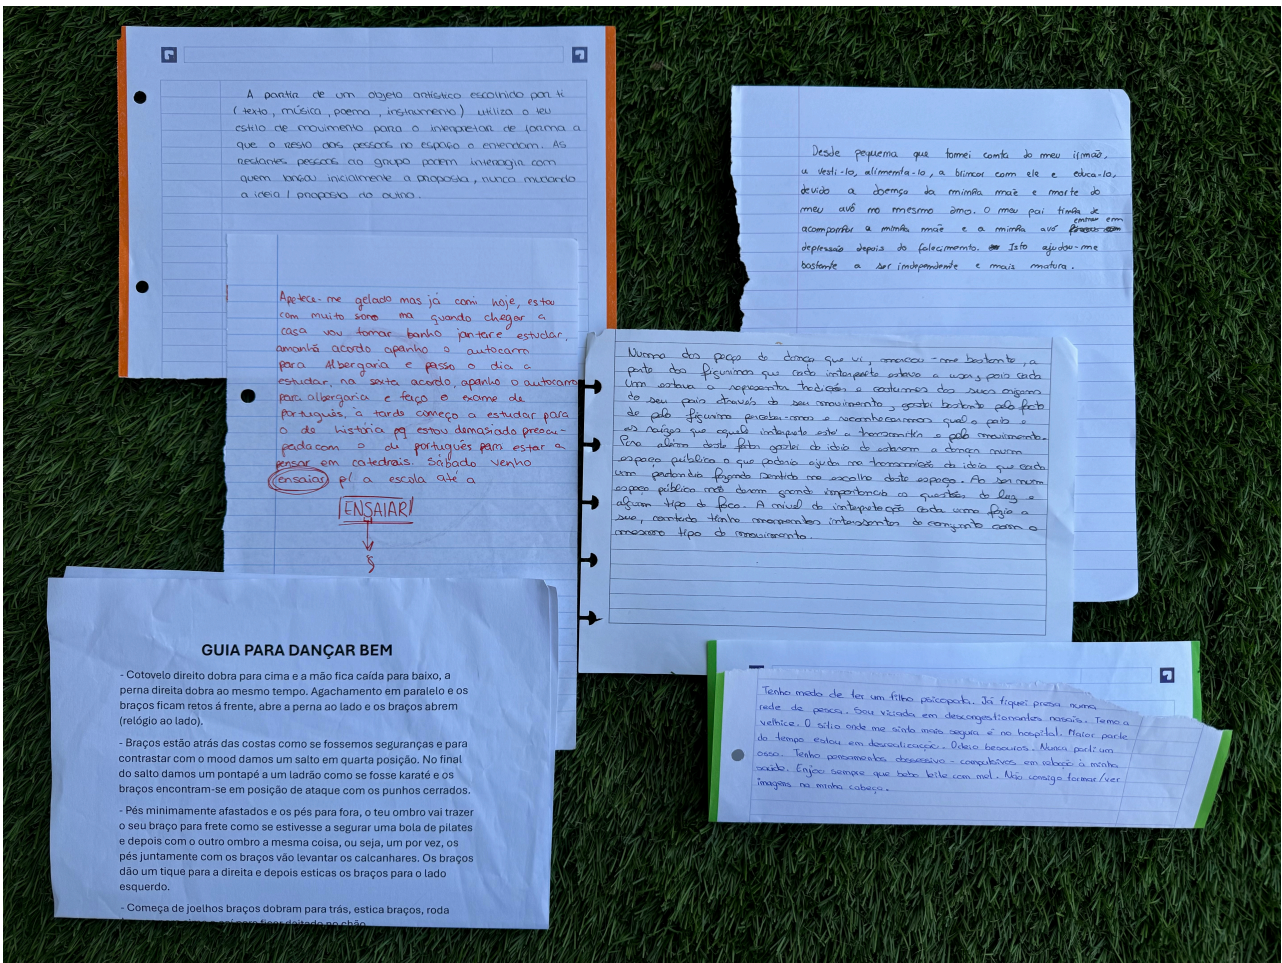 A partir de um objeto artístico escolhido por ti
(texto, música, poema, instrumento) utiliza o teu
estilo de movimento para o interpretar de forma a
que o resto das pessoas no espaço o entendam. As
restantes pessoas do grupo podem interagir com
quem lançou inicialmente a proposta, nunca mudando
a ideia / proposta do outro.
Desde pequena que tomei conta do meu irmão,
a vesti-lo, alimenta-lo, a brincar com ele e educa-lo,
devido a doença da minha mãe e morte do
meu avô no mesmo ano. O meu pai tinha de
acompanhar a minha mãe e a minha avó entrar em
depressão depois do falecimento. Isto ajudou-me
bastante a ser independente e mais matura.
Apetece-me gelado mas já comi hoje, estou
com muito sono ma quando chegar a
casa vou tomar banho jantar e estudar,
amanhã acordo apanho o autocarro
para Albergaria e passo o dia a
estudar, na sexta acordo, apanho o autocarro
para albergaria e faço o exame de
português, à tarde começo a estudar para
o de história pq estou demasiado preocu-
pada com o de português para estar a
pensar em catedrais. Sábado venho
ensaiar p/ a escola até a
ENSAIAR
Numa das peças de dança que vi, marcou-me bastante, a
parte dos figurinos que cada interprete estava a usar, pois cada
um estava a representar tradições e costumes das suas origens
do seu pais através do seu movimento, gostei bastante pelo facto
de pelo figurino percebermos e reconhecermos qual o país e
as raízes que aquele interprete está a transmitir e pelo movimento.
Para além deste facto gostei da ideia de estarem a dançar num
espaço público o que poderia ajudar na transmissão da ideia que cada
um pretendia fazendo sentido na escolha deste espaço. Ao ser num
espaço público não deram grande importância as questões de luz e
algum tipo de foco. A nível de interpretação cada uma fazia a
sua, contudo tinha momentos interessantes de conjunto com o
mesmo tipo de movimento.
GUIA PARA DANÇAR BEM
- Cotovelo direito dobra para cima e a mão fica caída para baixo, a
perna direita dobra ao mesmo tempo. Agachamento em paralelo e os
braços ficam retos á frente, abre a perna ao lado e os braços abrem
(relógio ao lado).
- Braços estão atrás das costas como se fossemos seguranças e para
contrastar com o mood damos um salto em quarta posição. No final
do salto damos um pontapé a um ladrão como se fosse karaté e os
braços encontram-se em posição de ataque com os punhos cerrados.
- Pés minimamente afastados e os pés para fora, o teu ombro vai trazer
o seu braço para frete como se estivesse a segurar uma bola de pilates
e depois com o outro ombro a mesma coisa, ou seja, um por vez, os
pés juntamente com os braços vão levantar os calcanhares. Os braços
dão um tique para a direita e depois esticas os braços para o lado
esquerdo.
- Começa de joelhos braços dobram para trás, estica braços, roda
Tenho medo de ter um filho psicopata. Já fiquei presa numa
rede de pesca. Sou viciada em descongestionantes nasais. Temo a
velhice. O sítio onde me sinto mais segura é no hospital. Maior parte
do tempo estou em desrealização. Odeio besouros. Nunca parti um
osso. Tenho pensamentos obsessivo-compulsivos em relação à minha
saúde. Enjoo sempre que bebo leite com mel. Não consigo formar/ver
imagens na minha cabeça.